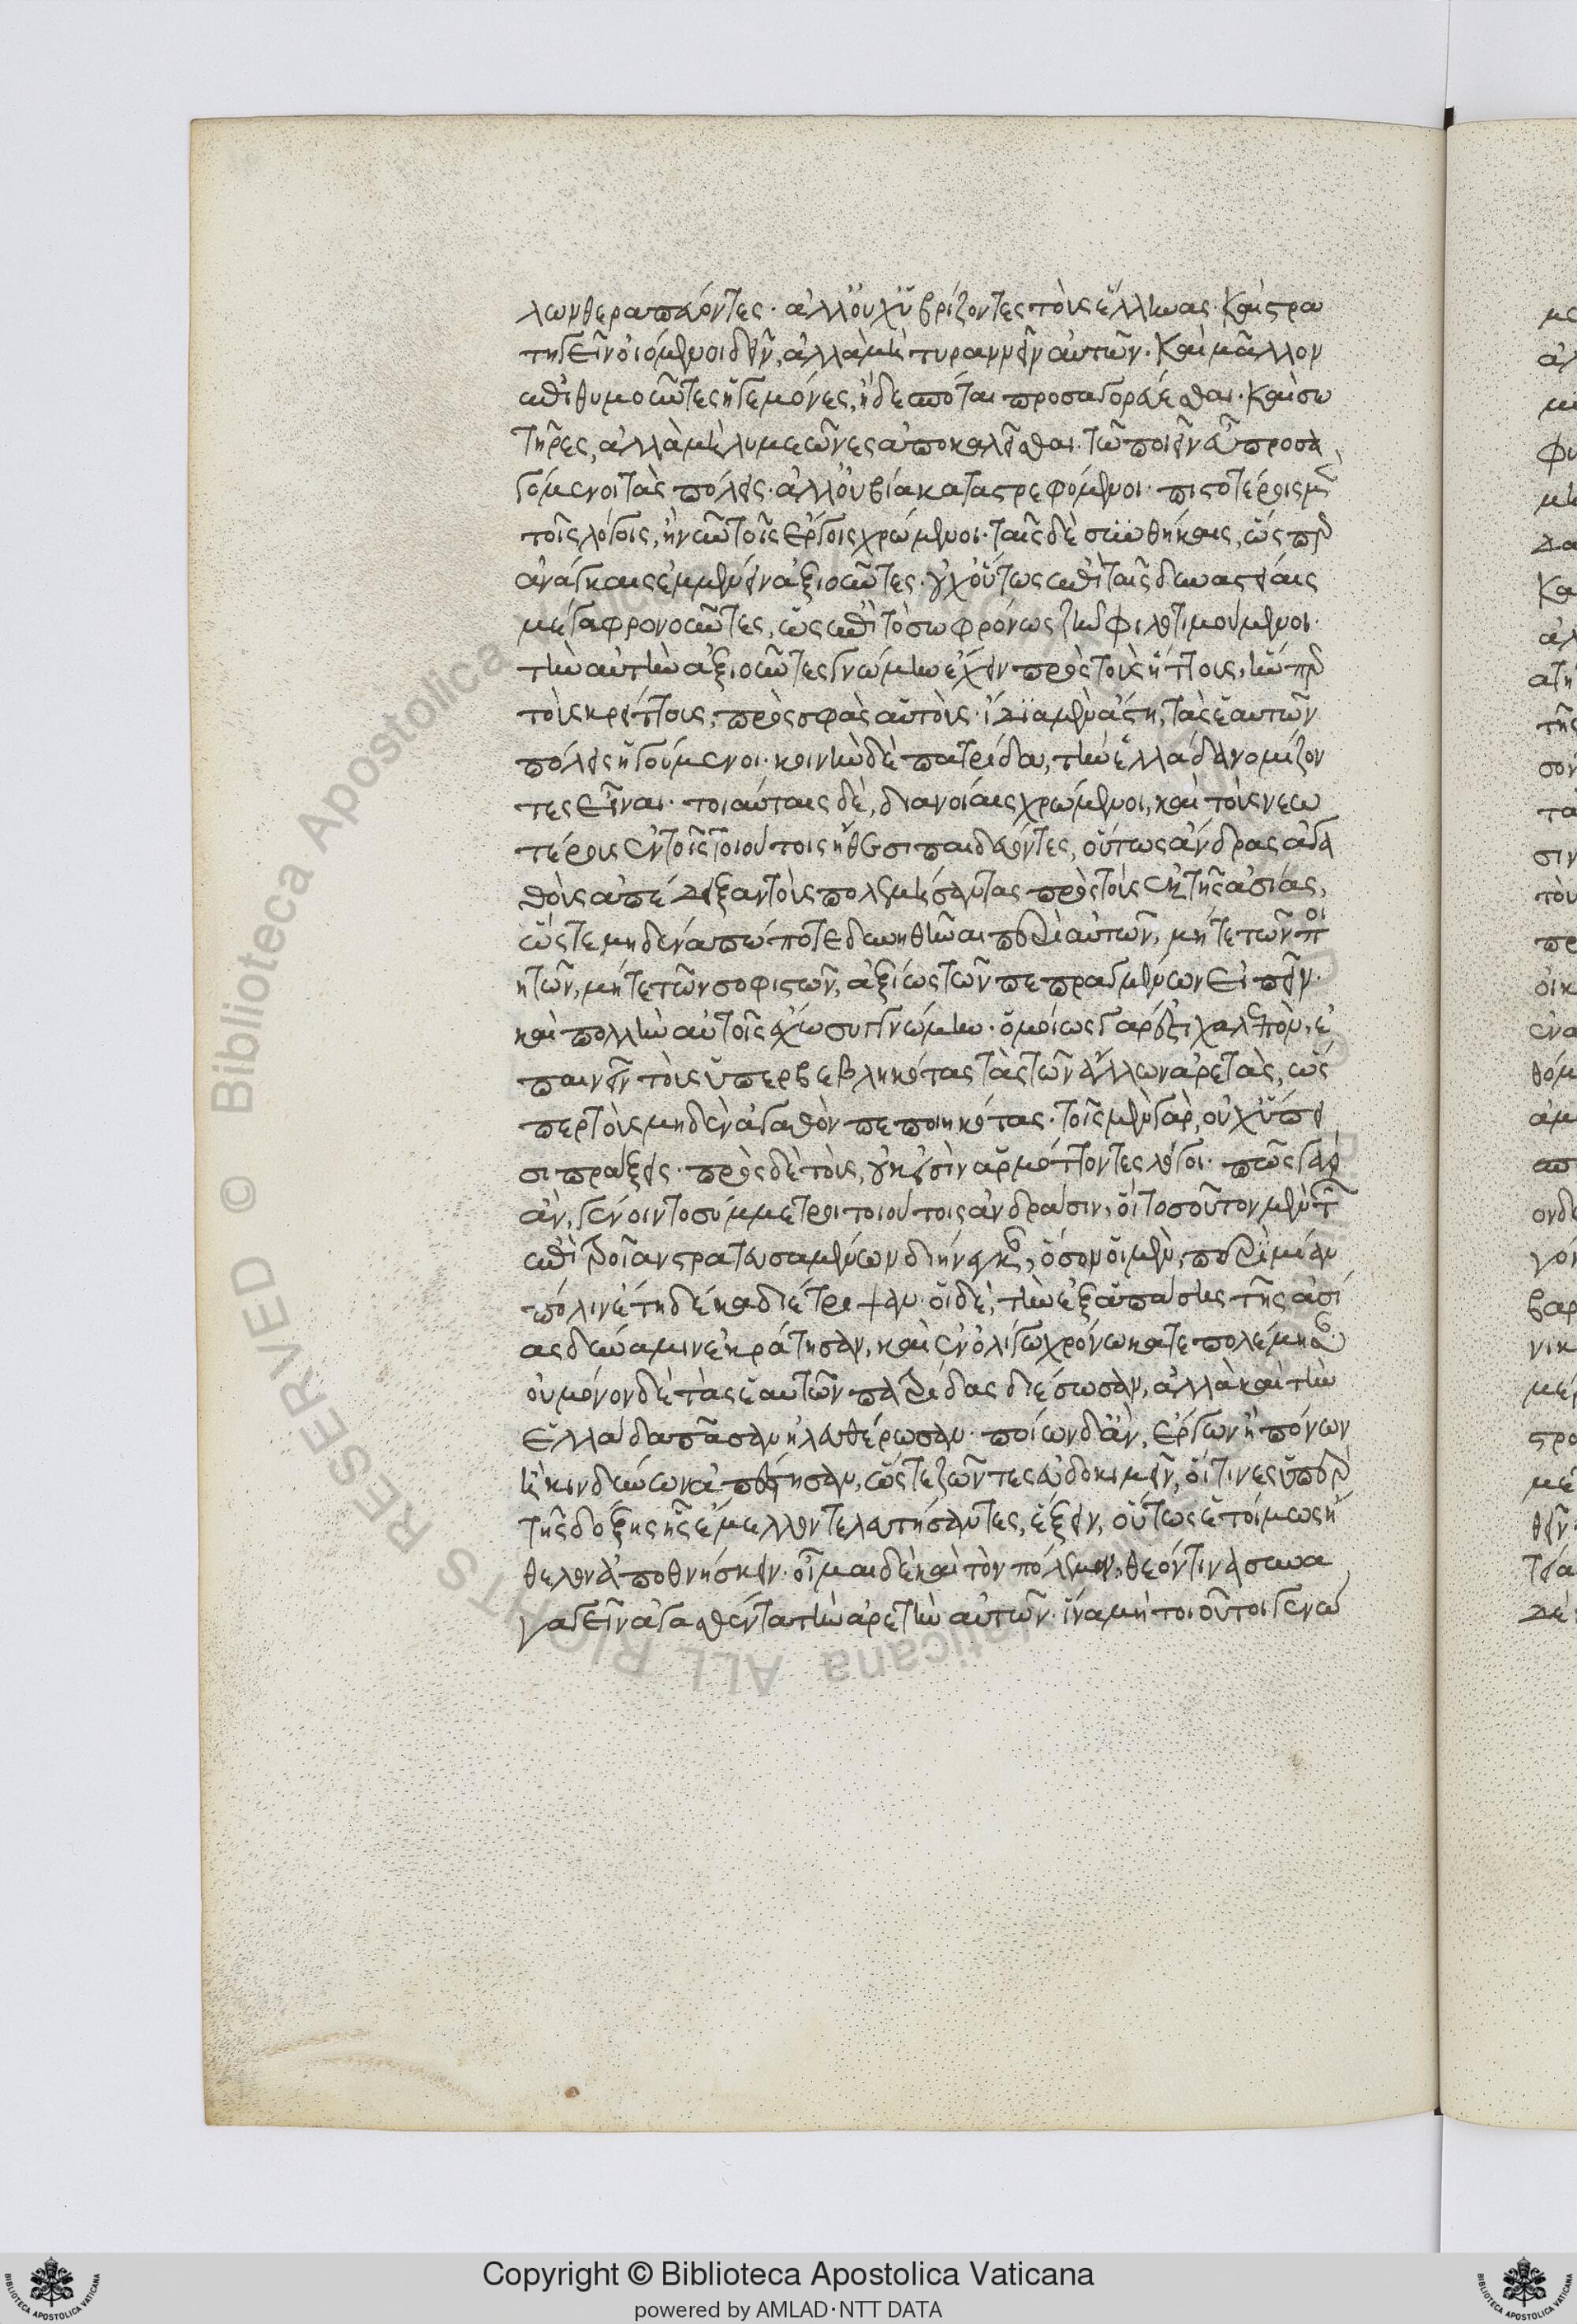 λων θεραπεύοντες· ἀλλ' οὐχ ὑβρίζοντες τοὺς ἕλληνας· καὶ στρα
τηγεῖν οἰόμενοι δεῖν, ἀλλὰ μὴ τυραννεῖν αὐτῶν· καὶ μᾶλλον
ἐπιθυμοῦντες ἡγεμόνες, ἢ δεσπόται προσαγορεύεσθαι· καὶ σω
τῆρες, ἀλλὰ μὴ λυμεῶνες ἀποκαλεῖσθαι. τῶ ποιεῖν εὖ προσα
γόμενοι τὰς πόλεις· ἀλλ' οὐ βία καταστρεφόμενοι· πιστοτέροις μὲν
τοῖς λόγοις, ἢ νῦν τοῖς ἔργοις χρώμενοι· ταῖς δὲ συνθήκαις, ὥσπερ
ἀνάγκαις ἐμμένειν ἀξιοῦντες· οὐχ οὕτως ἐπὶ ταῖς δυναστείαις
μέγα φρονοῦντες, ὡς ἐπὶ τὸ σωφρόνως ζῆν φιλοτιμούμενοι·
τὴν αὐτὴν ἀξιοῦντες γνώμην ἔχειν πρὸς τοὺς ἥττους, ἥνπερ
τοὺς κρείττους, πρὸς σφᾶς αὐτούς· ἴδια μὲν ἄστη, τὰς ἑαυτῶν
πόλεις ἡγούμενοι· κοινὴν δὲ πατρίδα, τὴν ἑλλάδα νομίζον
τες εἶναι· τοιαύταις δὲ, διανοίαις χρώμενοι, καὶ τοὺς νεω
τέρους ἐν τοῖς τοιούτοις ἤθεσι παιδεύοντες, οὕτως ἄνδρας ἀγα
θοὺς ἀπέδειξαν τοὺς πολεμήσαντας πρὸς τοὺς ἐκ τῆς ἀσίας,
ὥστε μηδένα πώποτε δυνηθῆναι περὶ αὐτῶν, μήτε τῶν ποι
ητῶν, μήτε τῶν σοφιστῶν, ἀξίως τῶν πεπραγμένων εἰπεῖν·
καὶ πολλὴν αὐτοῖς ἔχω συγγνώμην· ὁμοίως γάρ ἐστι χαλεπὸν, ἐ
παινεῖν τοὺς ὑπερβεβληκότας τὰς τῶν ἄλλων ἀρετὰς, ὥσ
περ τοὺς μηδὲν ἀγαθὸν πεποιηκότας· τοῖς μὲν γὰρ, οὐχ ὕπει
σι πράξεις· πρὸς δὲ τοὺς, οὐκ εἰσὶν ἁρμόττοντες λόγοι· πῶς γὰρ
ἂν, γένοιντο σύμμετροι τοιούτοις ἀνδράσιν, οἳ τοσοῦτον μὲν τῶν
ἐπὶ τροίαν στρατευσαμένων διήνεγκαν, ὅσον οἱ μὲν, περὶ μίαν
πόλιν ἔτη δέκα διέτριψαν· οἱ δὲ, τὴν ἐξ ἁπάσης τῆς ἀσί
ας δύναμιν ἐκράτησαν, καὶ ἐν ὀλίγω χρόνω κατεπολέμησαν·
οὐ μόνον δὲ τὰς ἑαυτῶν πατρίδας διέσωσαν, ἀλλὰ καὶ τὴν
ἑλλάδα πᾶσαν ἠλευθέρωσαν· ποίων δ' ἂν, ἔργων ἢ πόνων
ἢ κινδύνων ἀπέστησαν, ὥστε ζῶντες εὐδοκιμεῖν, οἵτινες ὑπὲρ
τῆς δόξης ἧς ἔμελλον τελευτήσαντες, ἕξειν, οὕτως ἑτοίμως ἤ
θελον ἀποθνήσκειν· οἶμαι δὲ καὶ τὸν πόλεμον, θεόν τινα συνα
γαγεῖν ἀγασθέντα τὴν ἀρετὴν αὐτῶν· ἵνα μὴ τοιοῦτοι γενό